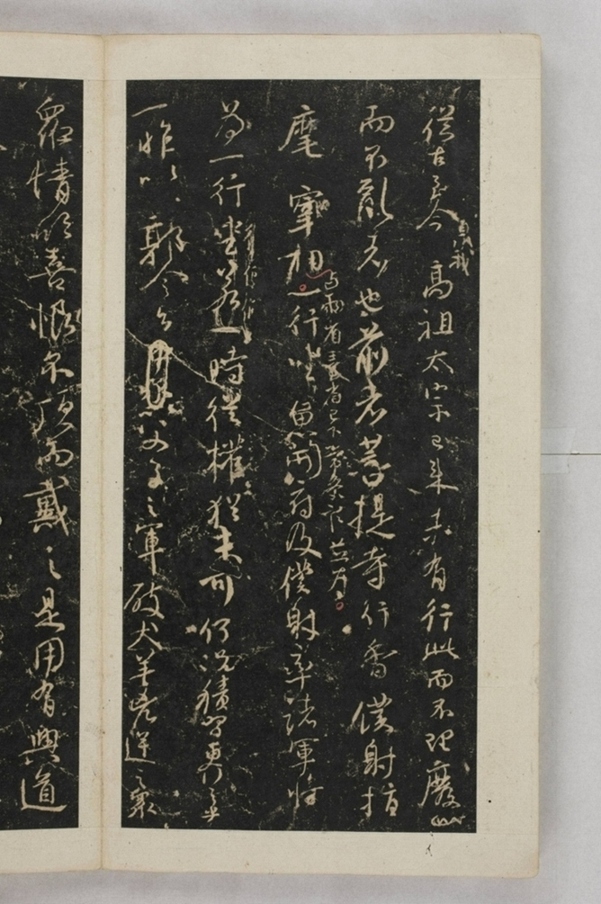 從古至今暨我高祖太宗已來未有行此而不理廢
而不亂者也前者菩提寺行香僕射指
麾宰相與兩省臺省已下常參官並為一行坐魚開府及僕射率諸軍將
為一行坐若一時從權猶未可何況積習更行之乎
一昨以郭令公以父子之軍破犬羊凶逆之眾
眾情欣喜恨不頂而戴之是用有興道